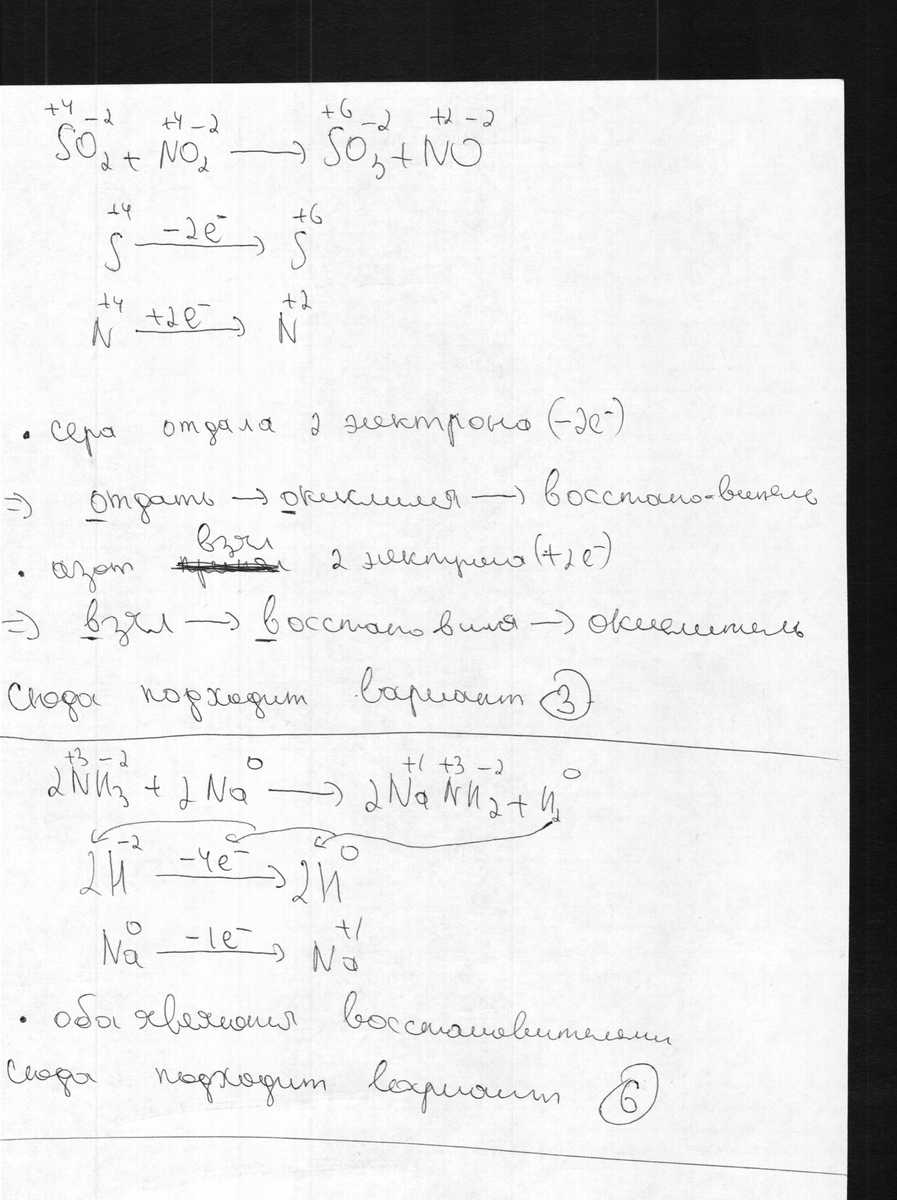 +4 -2 +4 -2 +6 -2 +2 -2
SO₂ + NO₂ → SO₃ + NO
+4 -2e⁻ +6
S → S
+4 +2e⁻ +2
N → N
• сера отдала 2 электрона (-2e⁻)
=> отдать → окислился → восстано-витель
• азот взял 2 электрона (+2e⁻)
=> взял → восстановился → окислитель
Сюда подходит вариант 3
+3 -2 0 +1 +3 -2 0
2NH₃ + 2Na → 2NaNH₂ + H₂
-2 -4e⁻ 0
2H → 2H
0 -1e⁻ +1
Na → Na
• оба являются восстановителями
Сюда подходит вариант 6